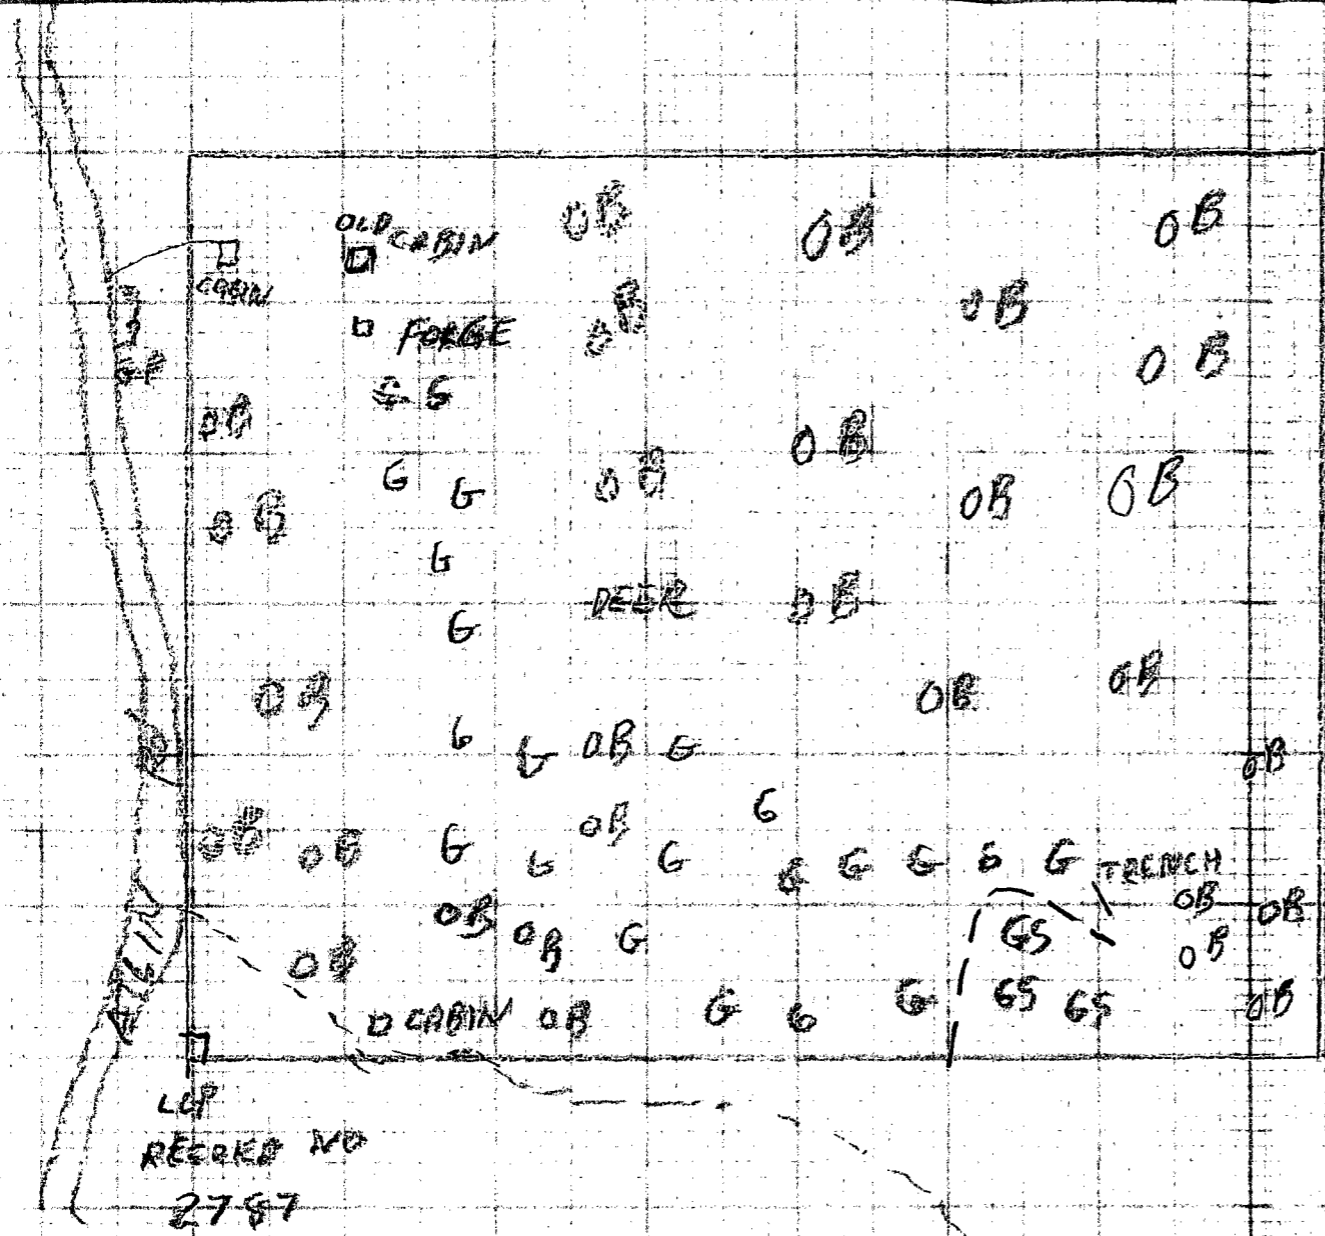 OB
OB
OB
OLD CABIN
CABIN
OB
OB
FORGE
OB
G G
OB
OB
OB
G G
OB
OB
OB
OB
G
DEER
OB
G
OB
OB
OB
G
G
OB
G
OB
G
OB
OB
OB
G
G
G
G
G
G
G
G
TRENCH
OB
OB
OB
OB
G
GS
OB
OB
CABIN
OB
G
G
G
GS
GS
OB
LCP
RECORD NO
2787